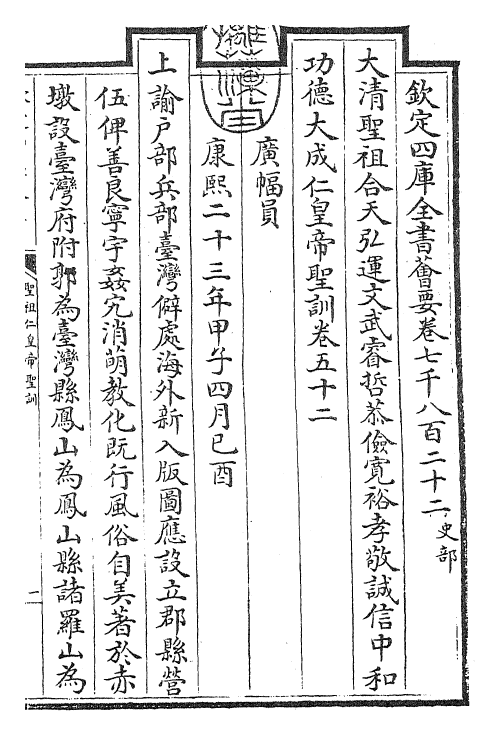 欽定四庫全書薈要卷七千八百二十二史部
大清聖祖合天弘運文武睿哲恭儉寬裕孝敬誠信中和
功德大成仁皇帝聖訓卷五十二
廣幅員
康熙二十三年甲子四月己酉
上諭户部兵部臺灣僻處海外新入版圖應設立郡縣營
伍俾善良寧宇姦宄消萌教化既行風俗自美著於赤
墩設臺灣府附郭為臺灣縣鳳山為鳳山縣諸羅山為
聖祖仁皇帝聖訓